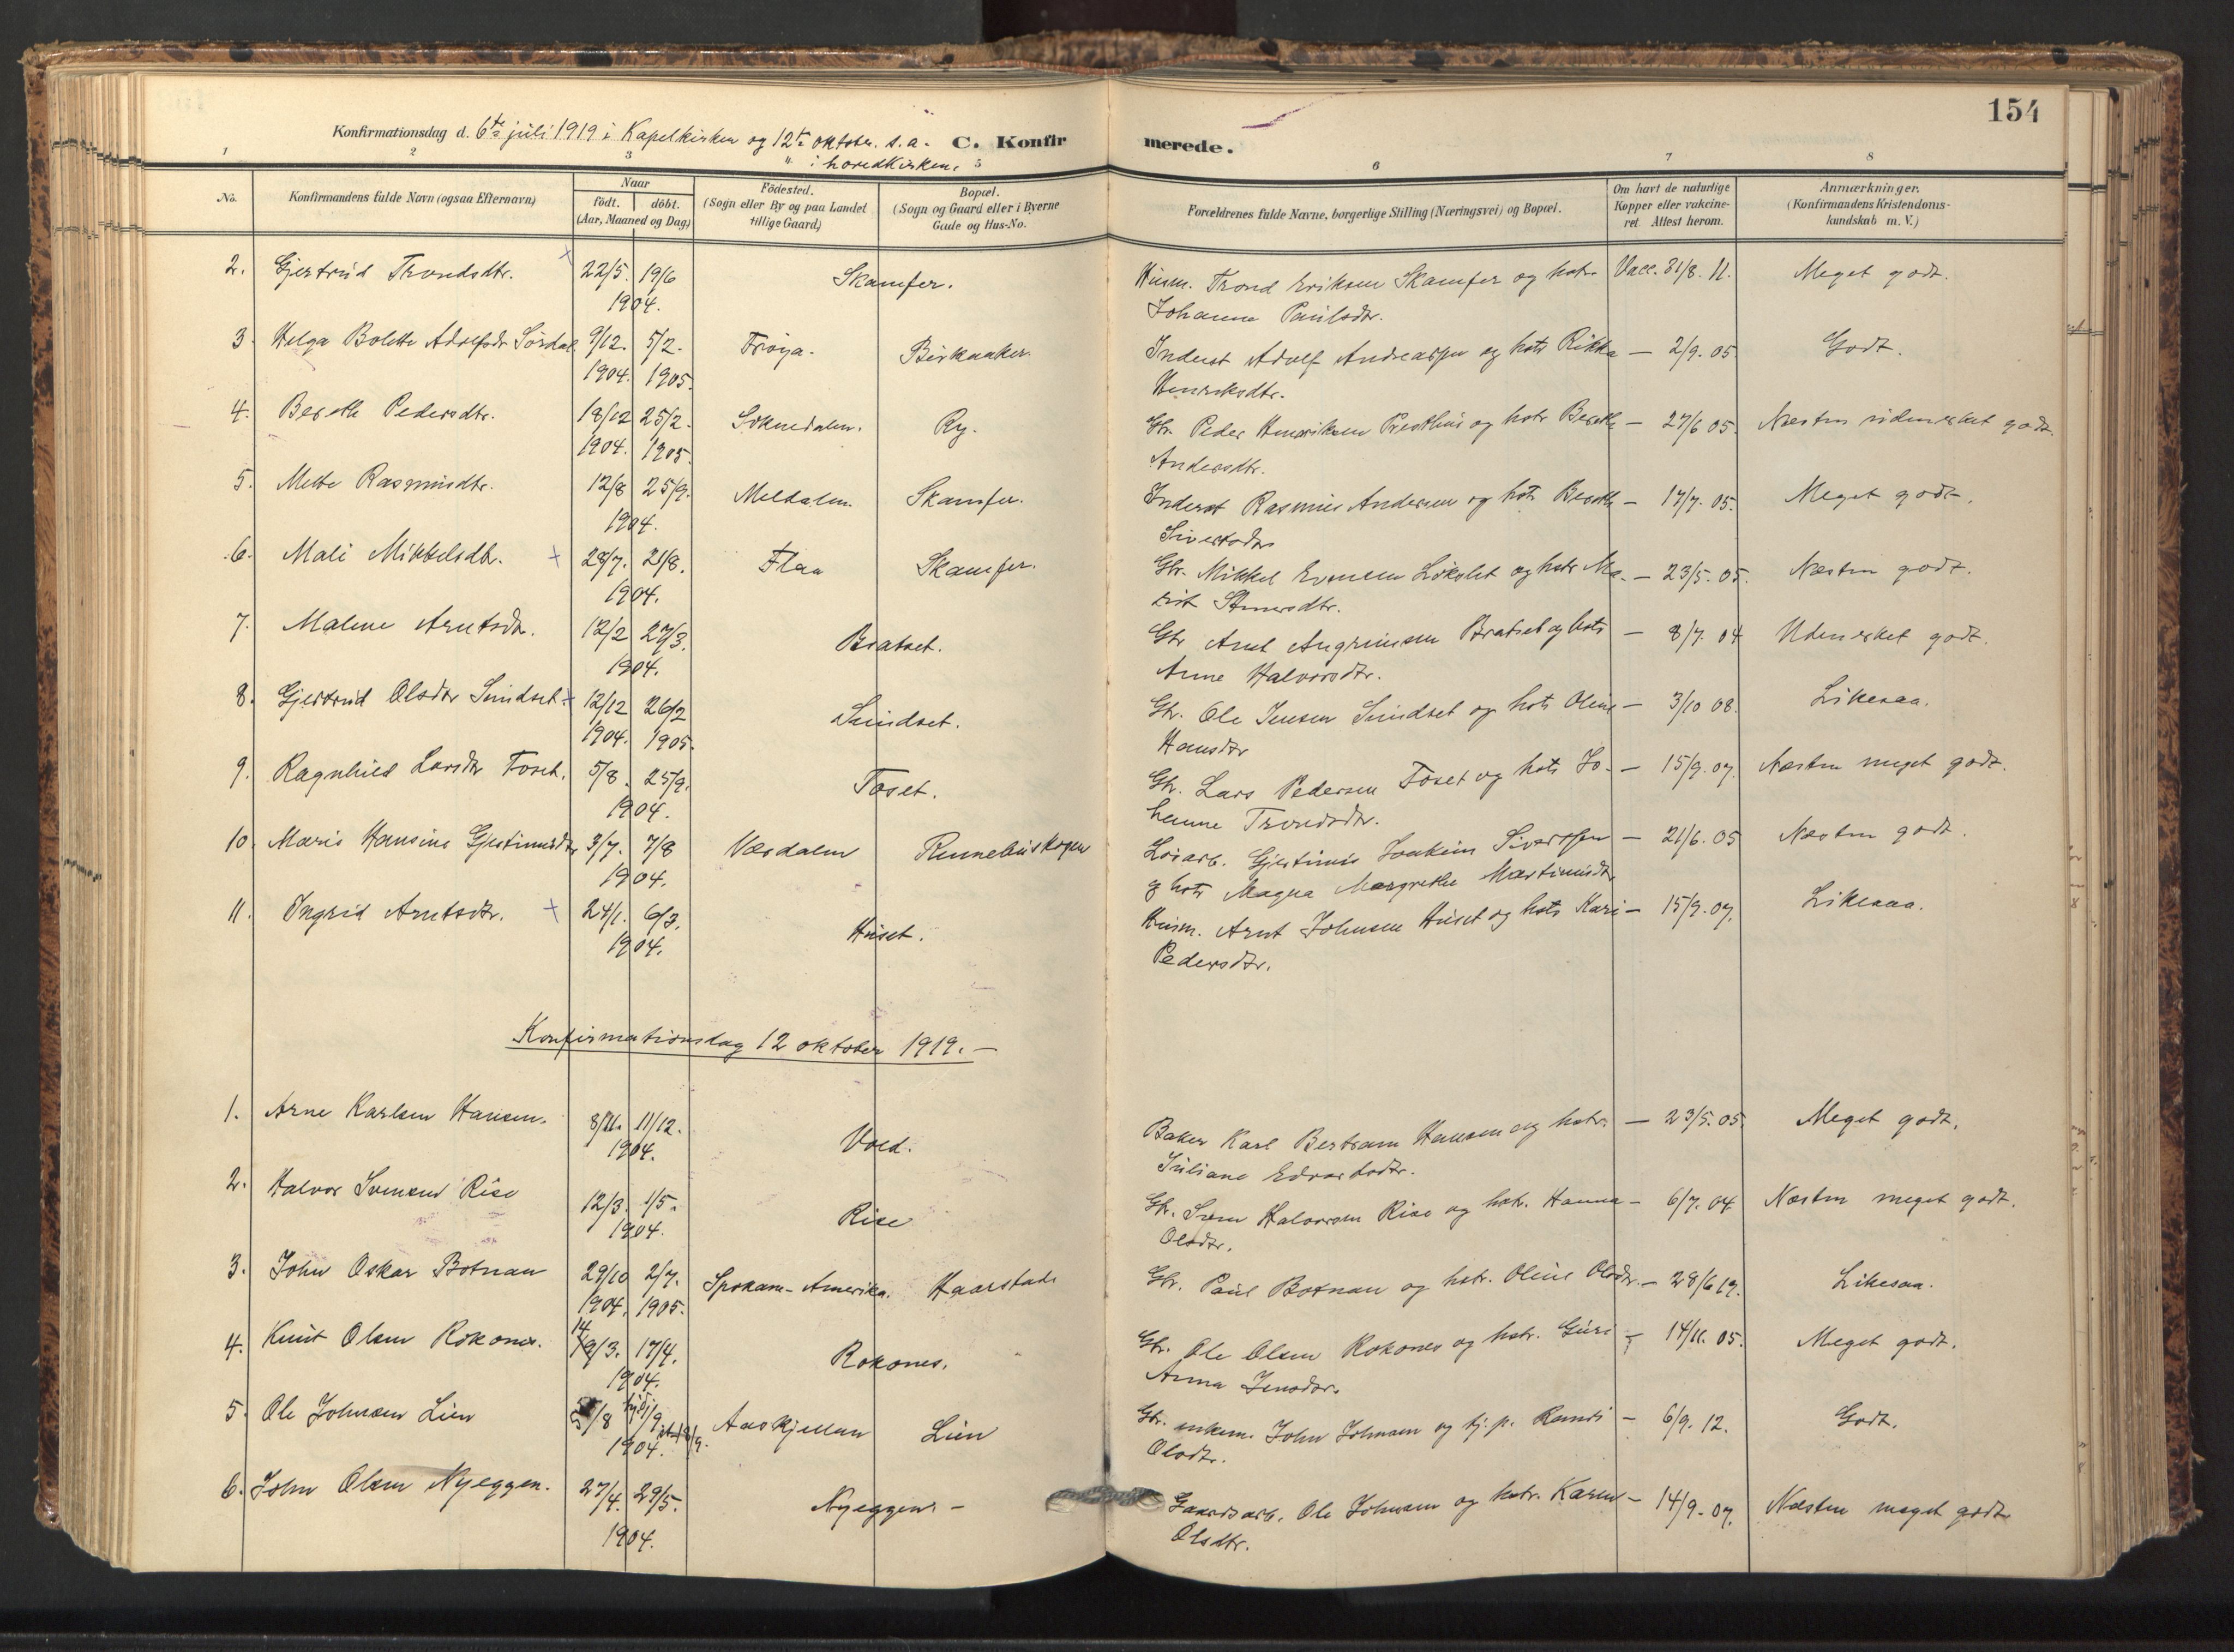 154
Konfirmationsdag d. 6te juli 1919 i Kapelkirken og 12te oktober s.a. C. Konfirmerede.
" i hovedkirken.
1 2 3 5 6 7 8
No. Konfirmandens fulde Navn (ogsaa Efternavn) Naar födt. döbt. (Aar, Maaned og Dag) Födested. (Sogn eller By og paa Landet tillige Gaard) Bopæl. (Sogn og Gaard eller i Byerne Gade og Hus-No. Forældrenes fulde Navne, borgerlige Stilling (Næringsvei) og Bopæl. Om havt de naturlige Kopper eller vakcineret Attest herom. Anmærkninger. (Konfirmandens Kristendomskundskab m. V.)
2. Gjertrud Trondsdtr. 22/5. 19/6 Skamfer. Husm. Trond Eriksen Skamfer og hstr. Vacc. 31/8. 11. Meget godt.
1904. Johanna Paulsdtr.
3. Helga Bolette Adolfsdr Sördal 9/12. 5/2. Fröya. Birkaaker. Inderst Adolf Andreassen og hstr Rikka — 2/9. 05. Godt.
1904. 1905. Henriksdtr.
4. Bereth Pedersdtr. 18/12 25/2. Soknedalen. Ry. Gbr. Peder Henriksen Presthus og hstr Bereth — 27/6 05. Næsten udmerket godt.
1904. 1905. Andersdtr.
5. Mette Rasmusdtr. 12/8 25/9. Meldalen. Skamfer. Inderst Rasmus Andersen og hstr Bereth — 17/7. 05. Meget godt.
1904. Sivertsdtr
6. Mali Mikkelsdtr. + 28/7. 21/8. Flaa Skamfer. Gbr. Mikkel Evensen Lökslet og hstr Ma- — 23/5. 05. Næsten godt.
1904. rit
7. Malene Arntsdtr. 12/2 27/3. Bratset. Gbr Arnt Angrimsen Bratset og hstr — 8/7. 04 Udmerket godt.
1904. Anne Halvorsdtr.
8. Gjertrud Olsdtr Sundset. + 12/12 26/2 Sundset. Gbr. Ole Jensen Sundset og hstr Oline — 3/10 08. Likesaa.
1904. 1905. Hansdtr
9. Ragnhild Larsdtr Toset. 5/8. 25/9. Toset. Gbr. Lars Pedersen Toset og hstr Jo- — 15/9. 07. Næsten meget godt.
1904. hanne Trondsdtr.
10. Maria Hansine Gjertinusdtr 3/7. 7/8 Værdalen Rennebuskogen Lösarb. Gjertinus Joakim Sivertsen — 21/6. 05 Næsten godt.
1904. og hstr Magna Margrethe Martinusdtr
11. Ingrid Arntsdtr. + 24/1. 6/3. Huset. Husm. Arnt Johnsen Huset og hstr Kari — 15/9. 07. Likesaa.
1904. Pedersdtr.
Konfirmationsdag 12 oktober 1919. —
1. Arne Karlsen Hansen. 8/11. 11/12. Vold. Baker Karl Bertram Hansen og hstr. — 23/5. 05. Meget godt.
1904. Juliane Edvartsdtr.
2. Halvor Svensen Rise 12/3. 1/5. Rise Gbr. Sven Halvorsen Rise og hstr. Hanna — 6/7. 04 Næsten meget godt.
1904. Olsdtr.
3. John Oskar Botnan 29/10 2/7. Spokane - Amerika. Haarstad Gbr. Paul Botnan og hstr. Oline Olsdtr. — 28/6 19. Likesaa.
1904. 1905.
4. Knut Olsen Rokones. 14 19/3. 17/4. Rokones. Gbr. Ole Olsen Rokones og hstr. Guri — 14/11. 05. Meget godt.
1904. Anna Jensdtr.
5. Ole Johnsen Lien 5/8 /9 Aaskjellan Lien Gbr. enkem. John Johnsen og tj. p. Randi — 6/9. 12. Godt.
1904. 18/9. Olsdtr.
6. John Olsen Nyeggen. 27/4. 29/5. Nyeggen. — Gaardsarb. Ole Johnsen og hstr. Karen — 14/9. 07. Næsten meget godt
1904. Olsdtr.